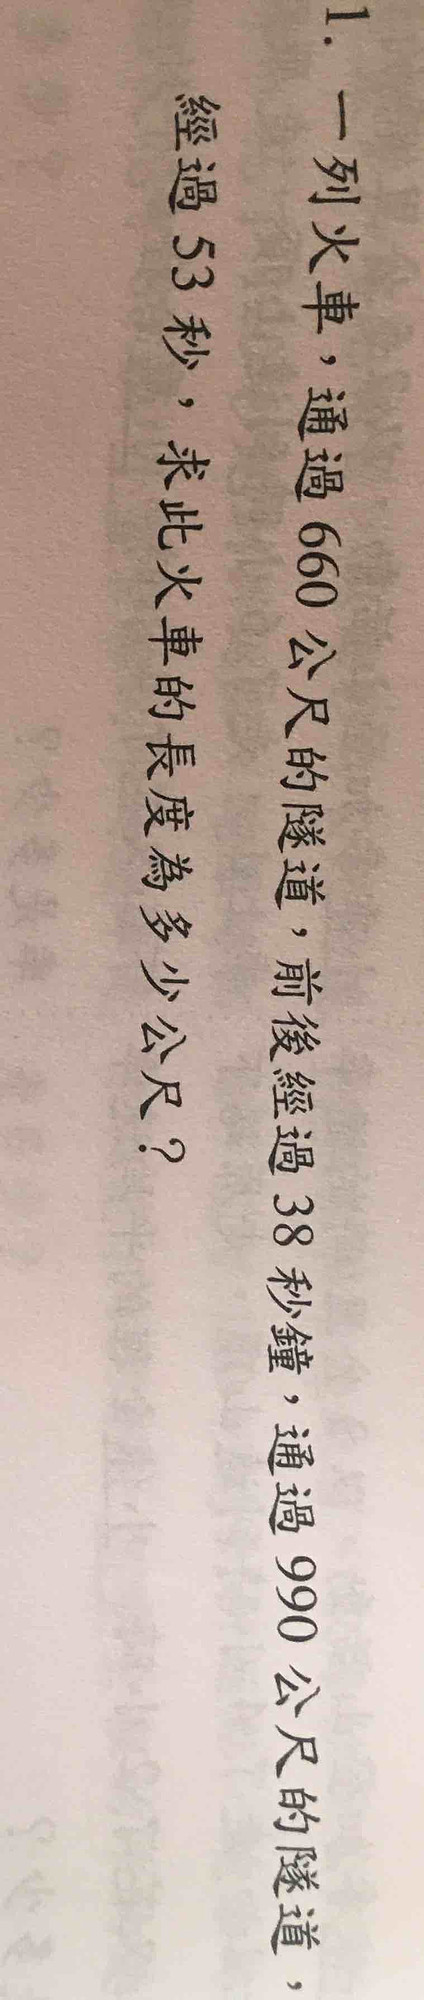 1. 一列火車，通過 660 公尺的隧道，前後經過 38 秒鐘，通過 990 公尺的隧道，
經過 53 秒，求此火車的長度為多少公尺？